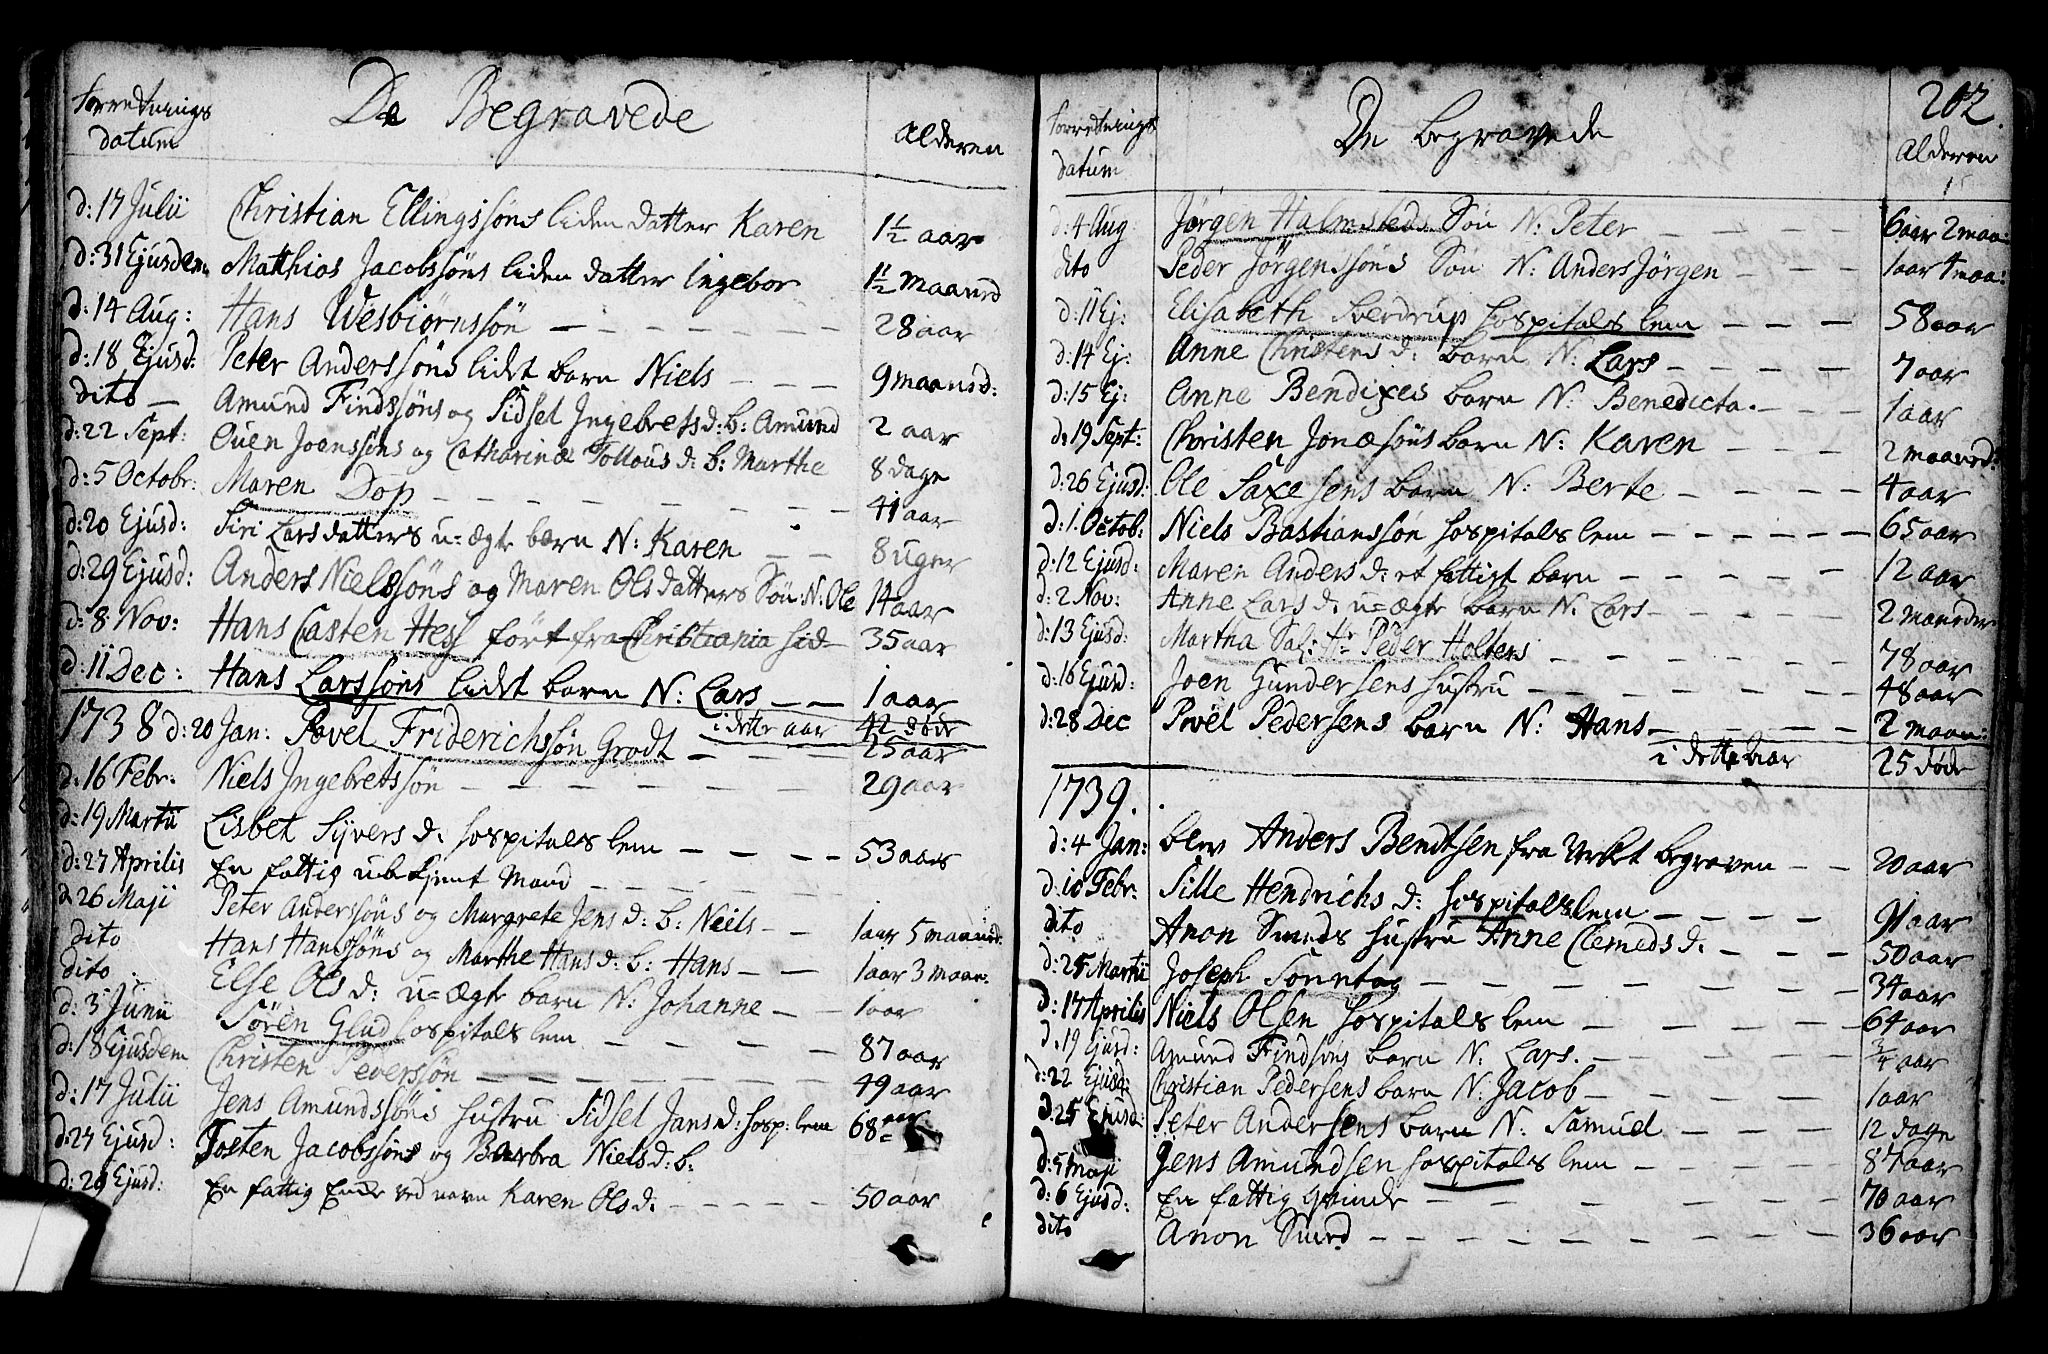 Forretnings datum De Begravede Alderen
d: 17 Julii Christian Ellingssøns liden datter Karen 1½ aar
d: 31 Ejusdem Matthios Jacobssøns liden datter Ingebor 1½ maaned
d: 14 Aug: Hans Wesbiørnssøn 28 aar
d: 18 Ejusd: Peter Anderssøns lidet barn Niels 9 maaned:
dito Amund Findssøns og Sidsel Ingebretsd: b: Amund 2 aar
d: 22 Sept: Ouen Joenssøns og Catharinæ d: b: Marthe 8 dage
d: 5 Octobr: Maren Dop 41 aar
d: 20 Ejusd: Siri Larsdatters u=ægte barn N: Karen 8 uger
d: 29 Ejusd: Anders Nielssøns og Maren Olsdatters Søn N: Ole 14 aar
d: 8 Nov: Hans Casten Hess ført fra Christiania hid 35 aar
d: 11 Dec: Hans Larssøns lidet barn N: Lars 1 aar
i dette aar 42 døde
1738 d: 20 Jan: Povel Friderichssøn Grodt 25 aar
d: 16 Febr: Niels Ingebretssøn 29 aar
d: 19 Martii Lisbet Sijvers d: hospitals lem 53 aar
d: 27 Aprilis En fattig ubekjent Mand
d 26 Maji Peter Anderssøns og Margrete Jens d: b: Niels 1 aar 5 maaned:
dito Hans Hanssøns og Marthe Hans d: b: Hans 1 aar 3 maan:
dito Else Ols d: u=ægte barn N: Johanne 1 aar
d: 3 Junii Søren Glud hospitals lem 87 aar
d: 18 Ejusdem Christen Peverssøn 49 aar
d: 17 Julii Jens Amundssøns hustru Sidsel Jansd: hosp: lem 68 aar
d: 27 Ejusd: Josten Jacobssøns og Barbra Niels d: b:
d: 29 Ejusd: En fattig Encke ved navn Karen Ols d: 50 aar
202
Forretnings datum De begravede Alderen
d: 4 Aug Jørgen Halmsteds Søn N: Peter 6 aar 2 maa:
dito Peder Jørgenssøns Søn N: Anders Jørgen 1 aar 4 maa:
d: 11 Ej: Elisabeth Sverdrup hospitals lem 58 aar
d: 14 Ej: Anne Christens d: barn N: Lars 7 aar
d: 15 Ej: Anne Bendixes barn N: Benedicta. 1 aar
d: 19 Sept: Christen Jonæsøns barn N: Karen 2 maaned:
d: 26 Ejusd: Ole Saxesens barn N: Berte 4 aar
d: 1. Octob: Niels Bastianssøn hospitals lem 65 aar
d: 12 Ejusd: Maren Anders d: et fattigt barn 12 aar
d: 2 Nov: Anne Lars d: u=ægte barn N: Lars 2 maaneder
d: 13 Ejusd: Martha Sal: Hr Peder Holters 78 aar
d: 16 Ejusd: Joen Gundersens hustru 48 aar
d: 28 Dec Povel Pedersens barn N: Hans 2 maan:
i dette aar 25 døde
1739.
d: 4 Jan: blev Anders Bendtsen fra Verket begraven 20 aar
d: 10 Febr: Sille Hendrichs d: hospitals lem 91 aar
dito Anon Smeds hustru Anne Clemeds d. 50 aar
d: 25 Martii Joseph Sonntag 34 aar
d: 17 Aprilis Niels Olsen hospitals lem 64 aar
d. 19 Ejusd: Amund Findsøns barn N: Lars. ¾ aar
d: 22 Ejusd: Christian Pedersens barn N: Jacob 1 aar
d: 25 Ejusd: Peter Andersens barn N: Samuel 12 dage
d: 5 Maji Jens Amundsen hospitals lem 87 aar
d: 6 Ejusd: En fattig Qvinde 70 aar
dito Anon Smed 36 aar